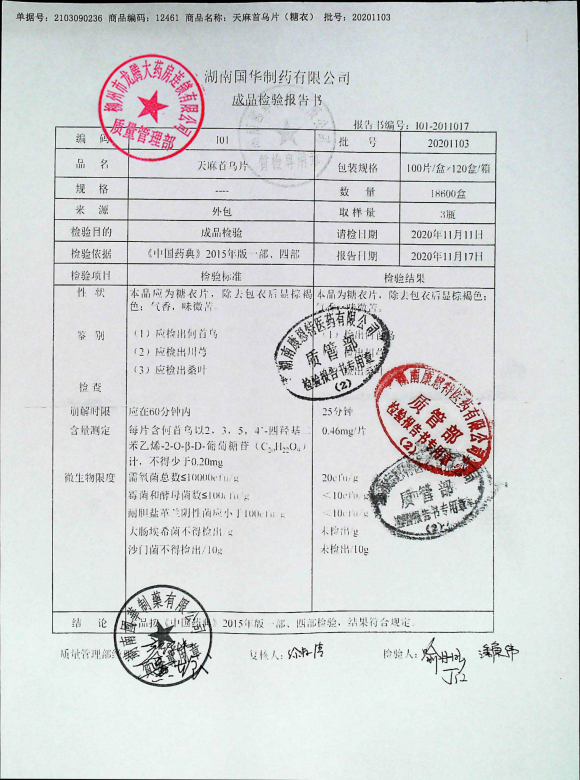 单据号: 2103090236 商品编码: 12461 商品名称: 天麻首乌片（糖衣） 批号: 20201103
湖南国华制药有限公司
成品检验报告书
柳州市龙腾大药房连锁有限公司
质量管理部
报告书编号: I01-2011017
编 码 I01 批 号 20201103
品 名 天麻首乌片 包装规格 100片/盒×120盒/箱
规 格 ---- 数 量 18600盒
来 源 外包 取样量 3瓶
检验目的 成品检验 请检日期 2020年11月11日
检验依据 《中国药典》2015年版一部、四部 报告日期 2020年11月17日
检验项目 检验标准 检验结果
性 状 本品应为糖衣片，除去包衣后显棕褐 本品为糖衣片，除去包衣后显棕褐色;
色；气香，味微苦。
鉴 别 （1）应检出何首乌
（2）应检出川芎
（3）应检出桑叶
检 查
崩解时限 应在60分钟内 25分钟
含量测定 每片含何首乌以2，3，5，4'-四羟基 0.46mg/片
苯乙烯-2-O-β-D-葡萄糖苷（C20H22O9）
计，不得少于0.20mg
微生物限度 需氧菌总数≦10000cfu/g 20cfu/g
霉菌和酵母菌数≦100cfu/g <10cfu/g
耐胆盐革兰阴性菌应小于100cfu/g <10cfu/g
大肠埃希菌不得检出/g 未检出/g
沙门菌不得检出/10g 未检出/10g
湖南康恩特医药有限公司
质管部
检验报告书专用章
（2）
湖南康恩特医药有限公司
质管部
检验报告书专用章
（2）
质管部
检验报告书专用章
（2）
结 论 品按《中国药典》2015年版一部、四部检验，结果符合规定。
湖南国华制药有限公司
质量管理部 复核人: 检验人: